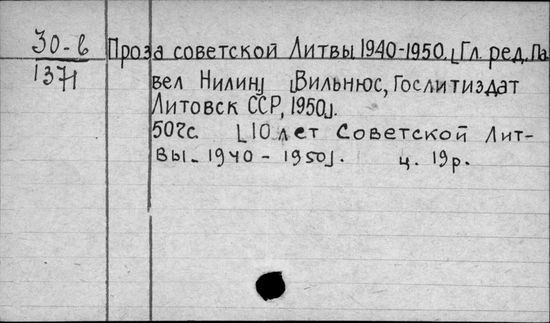 30-в
1371
Проза советской Литвы 1940-1950. [Гл. ред. Па
вел Нилин] [Вильнюс, Гослитиздат
Литовск ССР, 1950].
507с. [10 лет Советской Лит-
вы. 1940 - 1950]. ц. 19р.